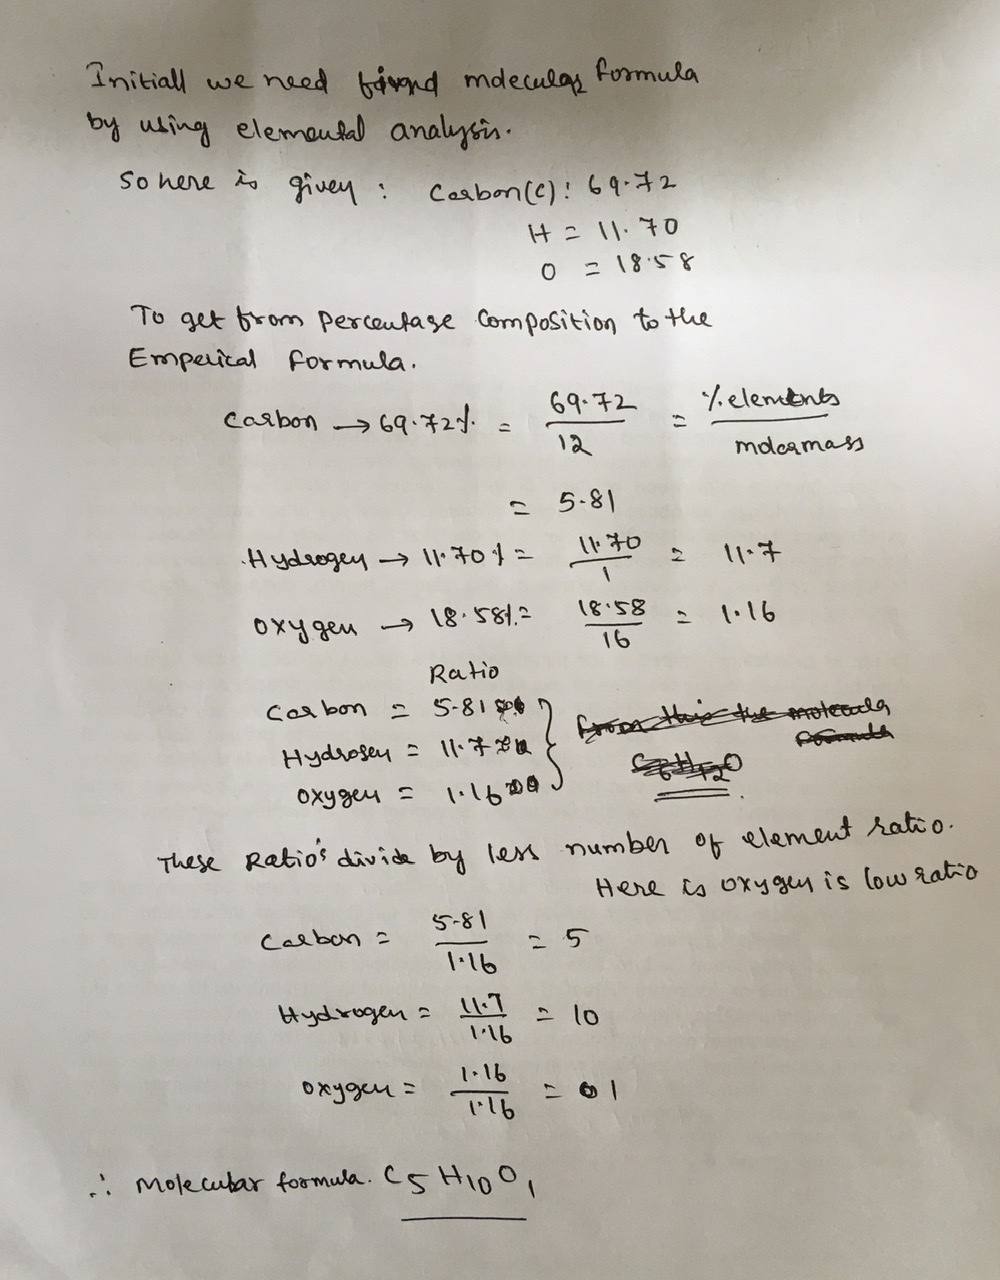 Initiall we need find molecular formula
by using elemental analysis.
So here is given : Carbon(C): 69.72
H = 11.70
O = 18.58
To get from percentage composition to the
Emperical formula.
Carbon → 69.72% = 69.72/12 = % elements/molarmass
= 5.81
Hydrogen → 11.70% = 11.70/1 = 11.7
Oxygen → 18.58% = 18.58/16 = 1.16
Ratio
Carbon = 5.81
Hydrogen = 11.7
Oxygen = 1.16
These Ratio's divide by less number of element ratio.
Here is oxygen is low ratio
Carbon = 5.81/1.16 = 5
Hydrogen = 11.7/1.16 = 10
Oxygen = 1.16/1.16 = 1
∴ Molecular formula. C5H10O1